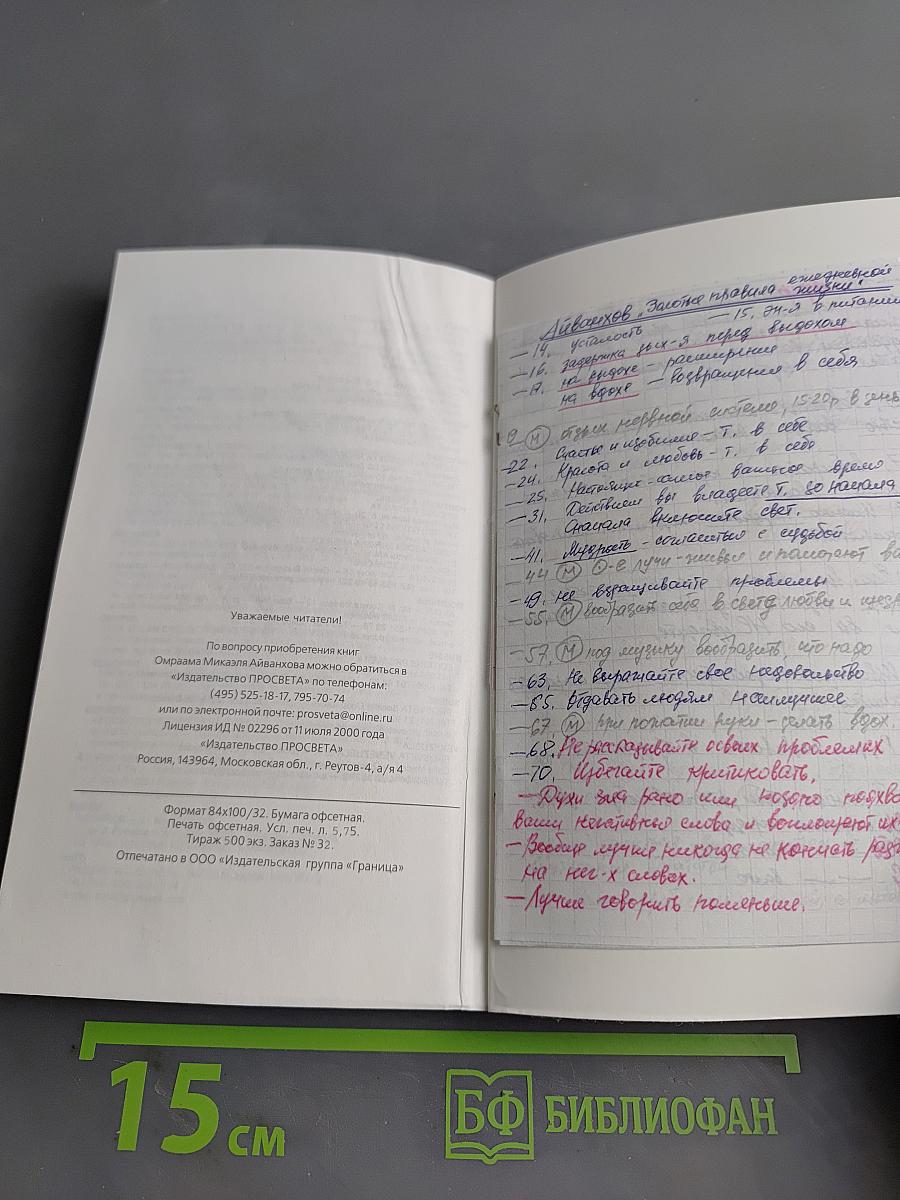 Уважаемые читатели!
По вопросу приобретения книг
Омраама Микаэля Айванхова можно обратиться в
«Издательство ПРОСВЕТА» по телефонам:
(495) 525-18-17, 795-70-74
или по электронной почте: prosveta@online.ru
Лицензия ИД № 02296 от 11 июля 2000 года
«Издательство ПРОСВЕТА»
Россия, 143964, Московская обл., г. Реутов-4, а/я 4
Формат 84х100/32. Бумага офсетная.
Печать офсетная. Усл. печ. л. 5,75.
Тираж 500 экз. Заказ № 32.
Отпечатано в ООО «Издательская группа «Граница»
Айванхов „Золотые правила ежедневной жизни“
—14. усталость —15. эн-я в питании
—16. задержка дых-я перед выдохом
—17. на выдохе — расширение
на вдохе — возвращение в себя
19 (М) отдых нервной системе, 15-20 р. в день
—22. Счастье и изобилие — т. в себе
—24. Красота и любовь — т. в себя
—25. Настоящее - самое важное время
—31. Действием вы владеете т. до начала
Сначала включите свет.
—41. Мудрость - согласитесь с судьбой
—44 (М) лучи - живые и помогают
—49. не взращивайте проблемы
—55. (М) вообразить себя в свете, любви и
—57. (М) под музыку вообразить, что надо
—63. Не выражайте свое недовольство
—65. Отдавать людям наилучшее
—67. (М) при пожатии руки - делать вдох.
—68. Не рассказывайте о своих проблемах
—70. Избегайте критиковать.
—Духи зла рано или поздно
ваши негативные слова и воплощают их
—Вообще лучше никогда не кончать
на нег-х словах.
—Лучше говорить поменьше.
15 см
БФ БИБЛИОФАН